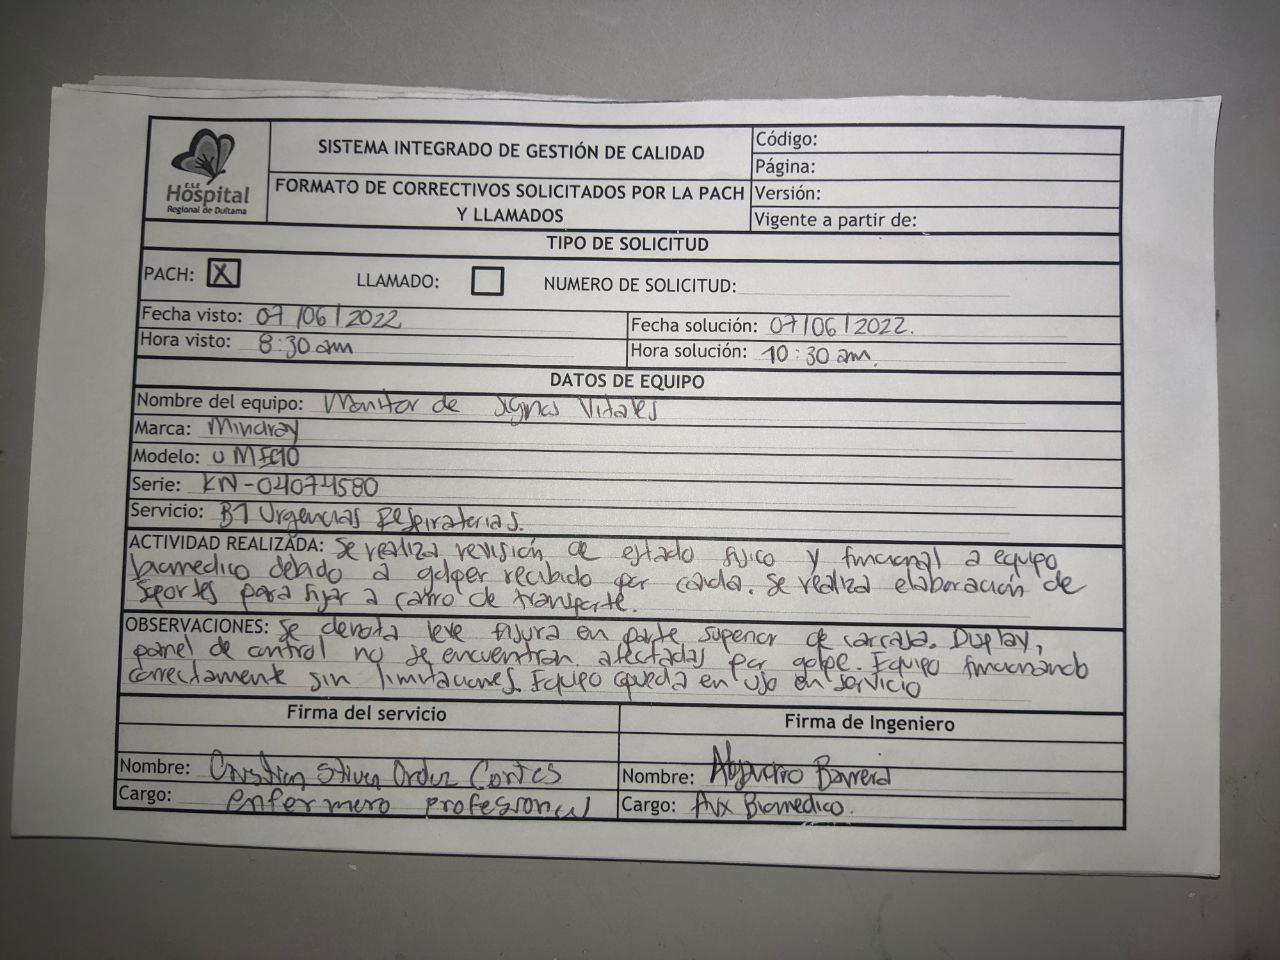 SISTEMA INTEGRADO DE GESTIÓN DE CALIDAD
FORMATO DE CORRECTIVOS SOLICITADOS POR LA PACH
Y LLAMADOS
Código:
Página:
Versión:
Vigente a partir de:
E.S.E.
Hospital
Regional de Duitama
TIPO DE SOLICITUD
PACH: X LLAMADO: NUMERO DE SOLICITUD:
Fecha visto: 07/06/2022 Fecha solución: 07/06/2022.
Hora visto: 8:30 am Hora solución: 10:30 am.
DATOS DE EQUIPO
Nombre del equipo: Monitor de signos Vitales
Marca: Mindray
Modelo: UMEC10
Serie: KN-04074580
Servicio: B1 Urgencias Respiratorias.
ACTIVIDAD REALIZADA: Se realiza revisión de estado fisico y funcional a equipo
biomedico debido a golpes recibido por caida. Se realiza elaboración de
soportes para fijar a carro de transporte.
OBSERVACIONES: Se denota leve fisura en parte superior de carcasa. Display,
panel de control no se encuentran afectadas por golpe. Equipo funcionando
correctamente sin limitaciones. Equipo queda en uso en servicio
Firma del servicio Firma de Ingeniero
Nombre: Cristian Stiven Cortes Nombre: Alejandro Barrera
Cargo: enfermero profesional Cargo: Aux Biomedico.